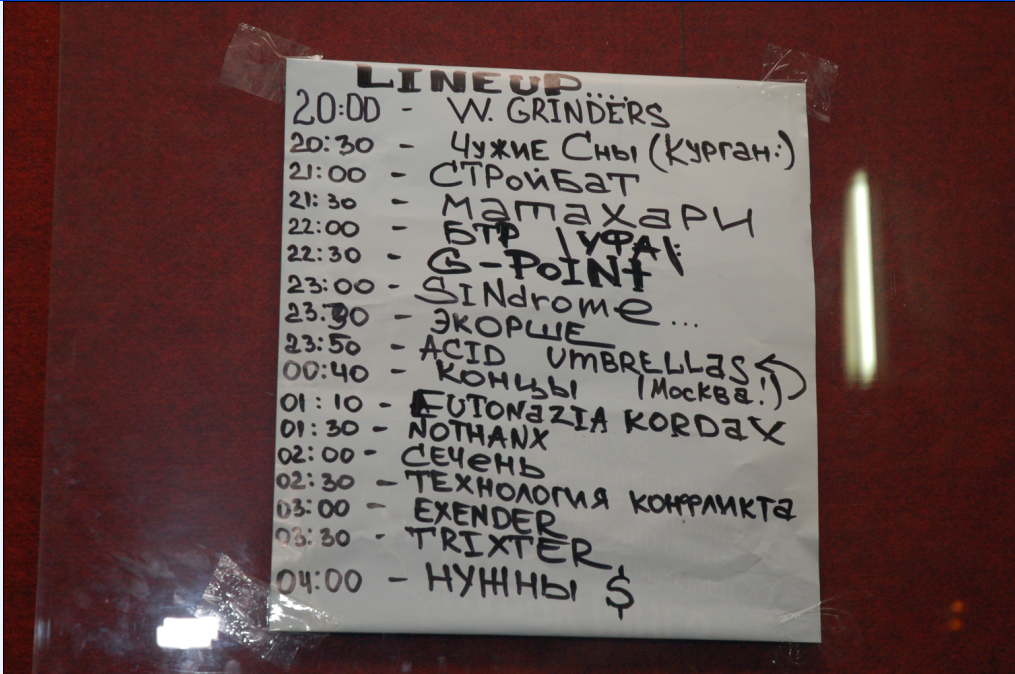 LINEUP...
20:00 - W. GRINDERS
20:30 - Чужие Сны (Курган:)
21:00 - СТРойБат
21:30 - матахари
22:00 - БТР \УФА\:
22:30 - G-POINt
23:00 - SINdrome...
23:30 - ЭКОРШЕ
23:50 - ACID UMBRELLaS
00:40 - КОНЦЫ (Москва!)
01:10 - EUTONaZIA KORDaX
01:30 - NOTHANX
02:00 - СЕЧеНЬ
02:30 - ТЕХНОЛОГИЯ КОНФЛИКТа
03:00 - EXENDER
03:30 - TRIXTER
04:00 - НУЖНЫ $